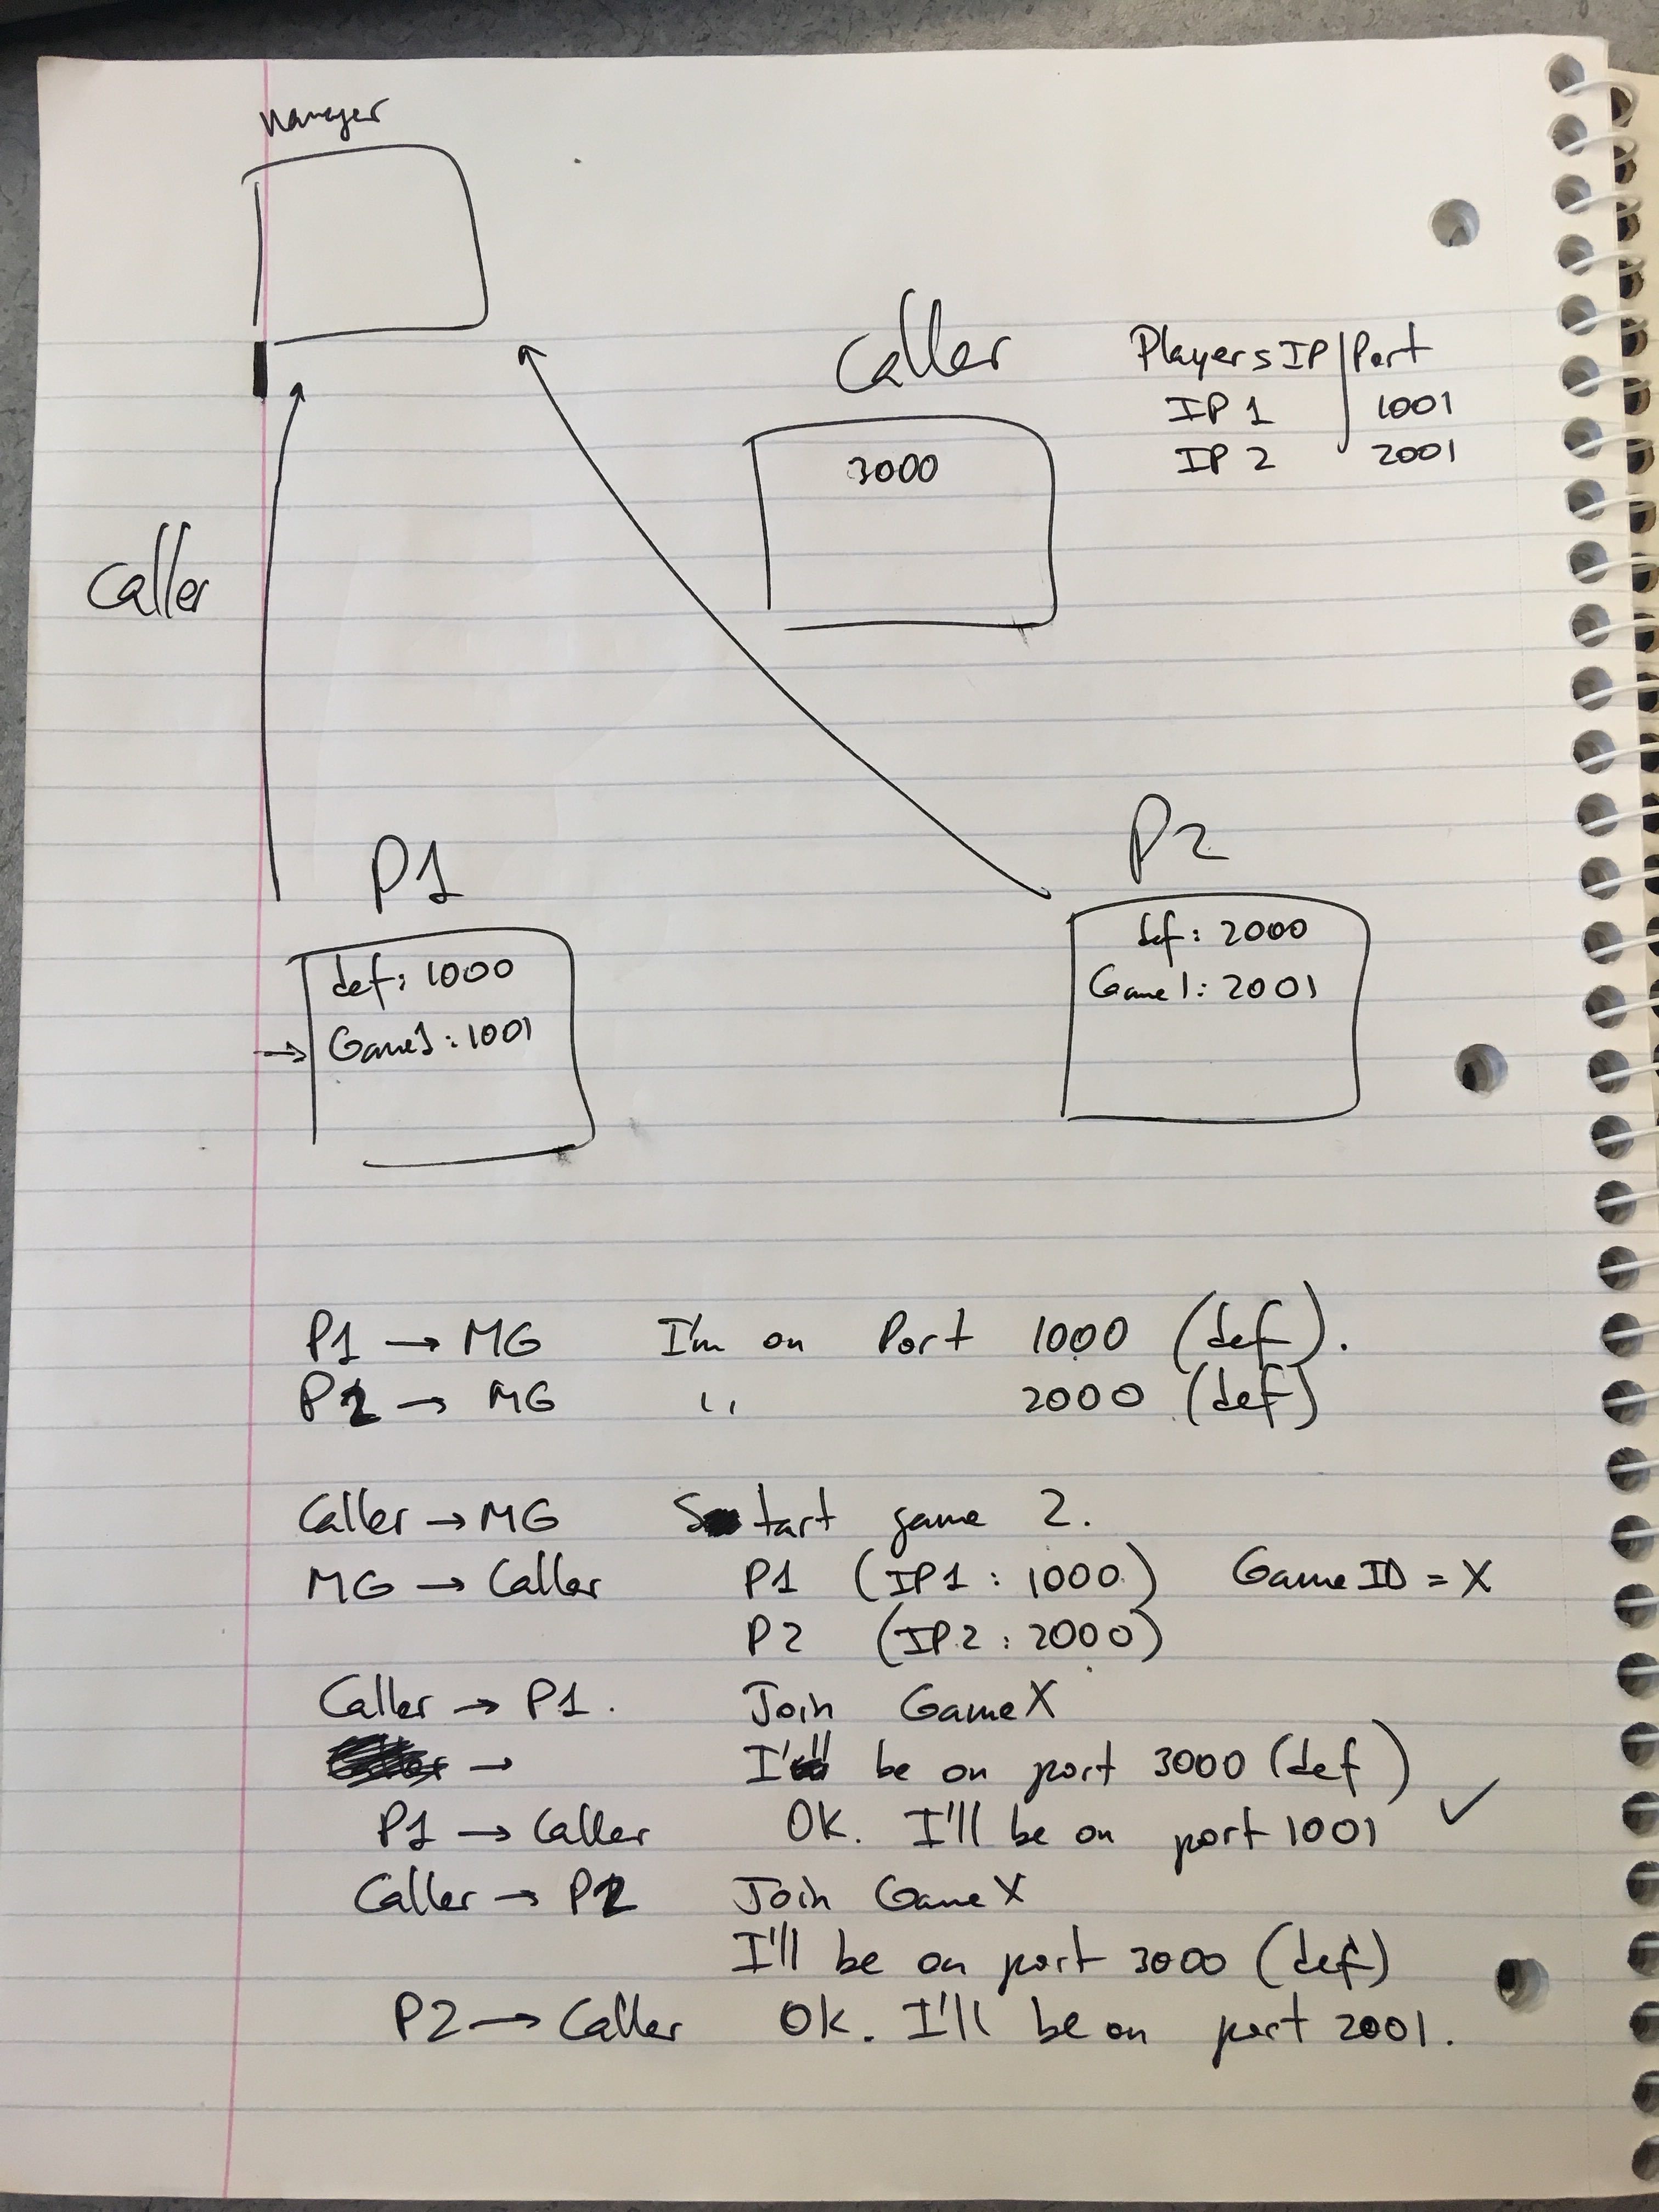 Manager
Caller
Players IP | Port
IP 1 1001
IP 2 2001
3000
Caller
P1
P2
def: 1000
Game1: 1001
def: 2000
Game1: 2001
P1 → MG I'm on Port 1000 (def).
P2 → MG " 2000 (def)
Caller → MG Start game 2.
MG → Caller P1 (IP1 : 1000) Game ID = X
P2 (IP2 : 2000)
Caller → P1. Join Game X
→ I'll be on port 3000 (def)
P1 → Caller OK. I'll be on port 1001 ✓
Caller → P2 Join Game X
I'll be on port 3000 (def)
P2 → Caller OK. I'll be on port 2001.